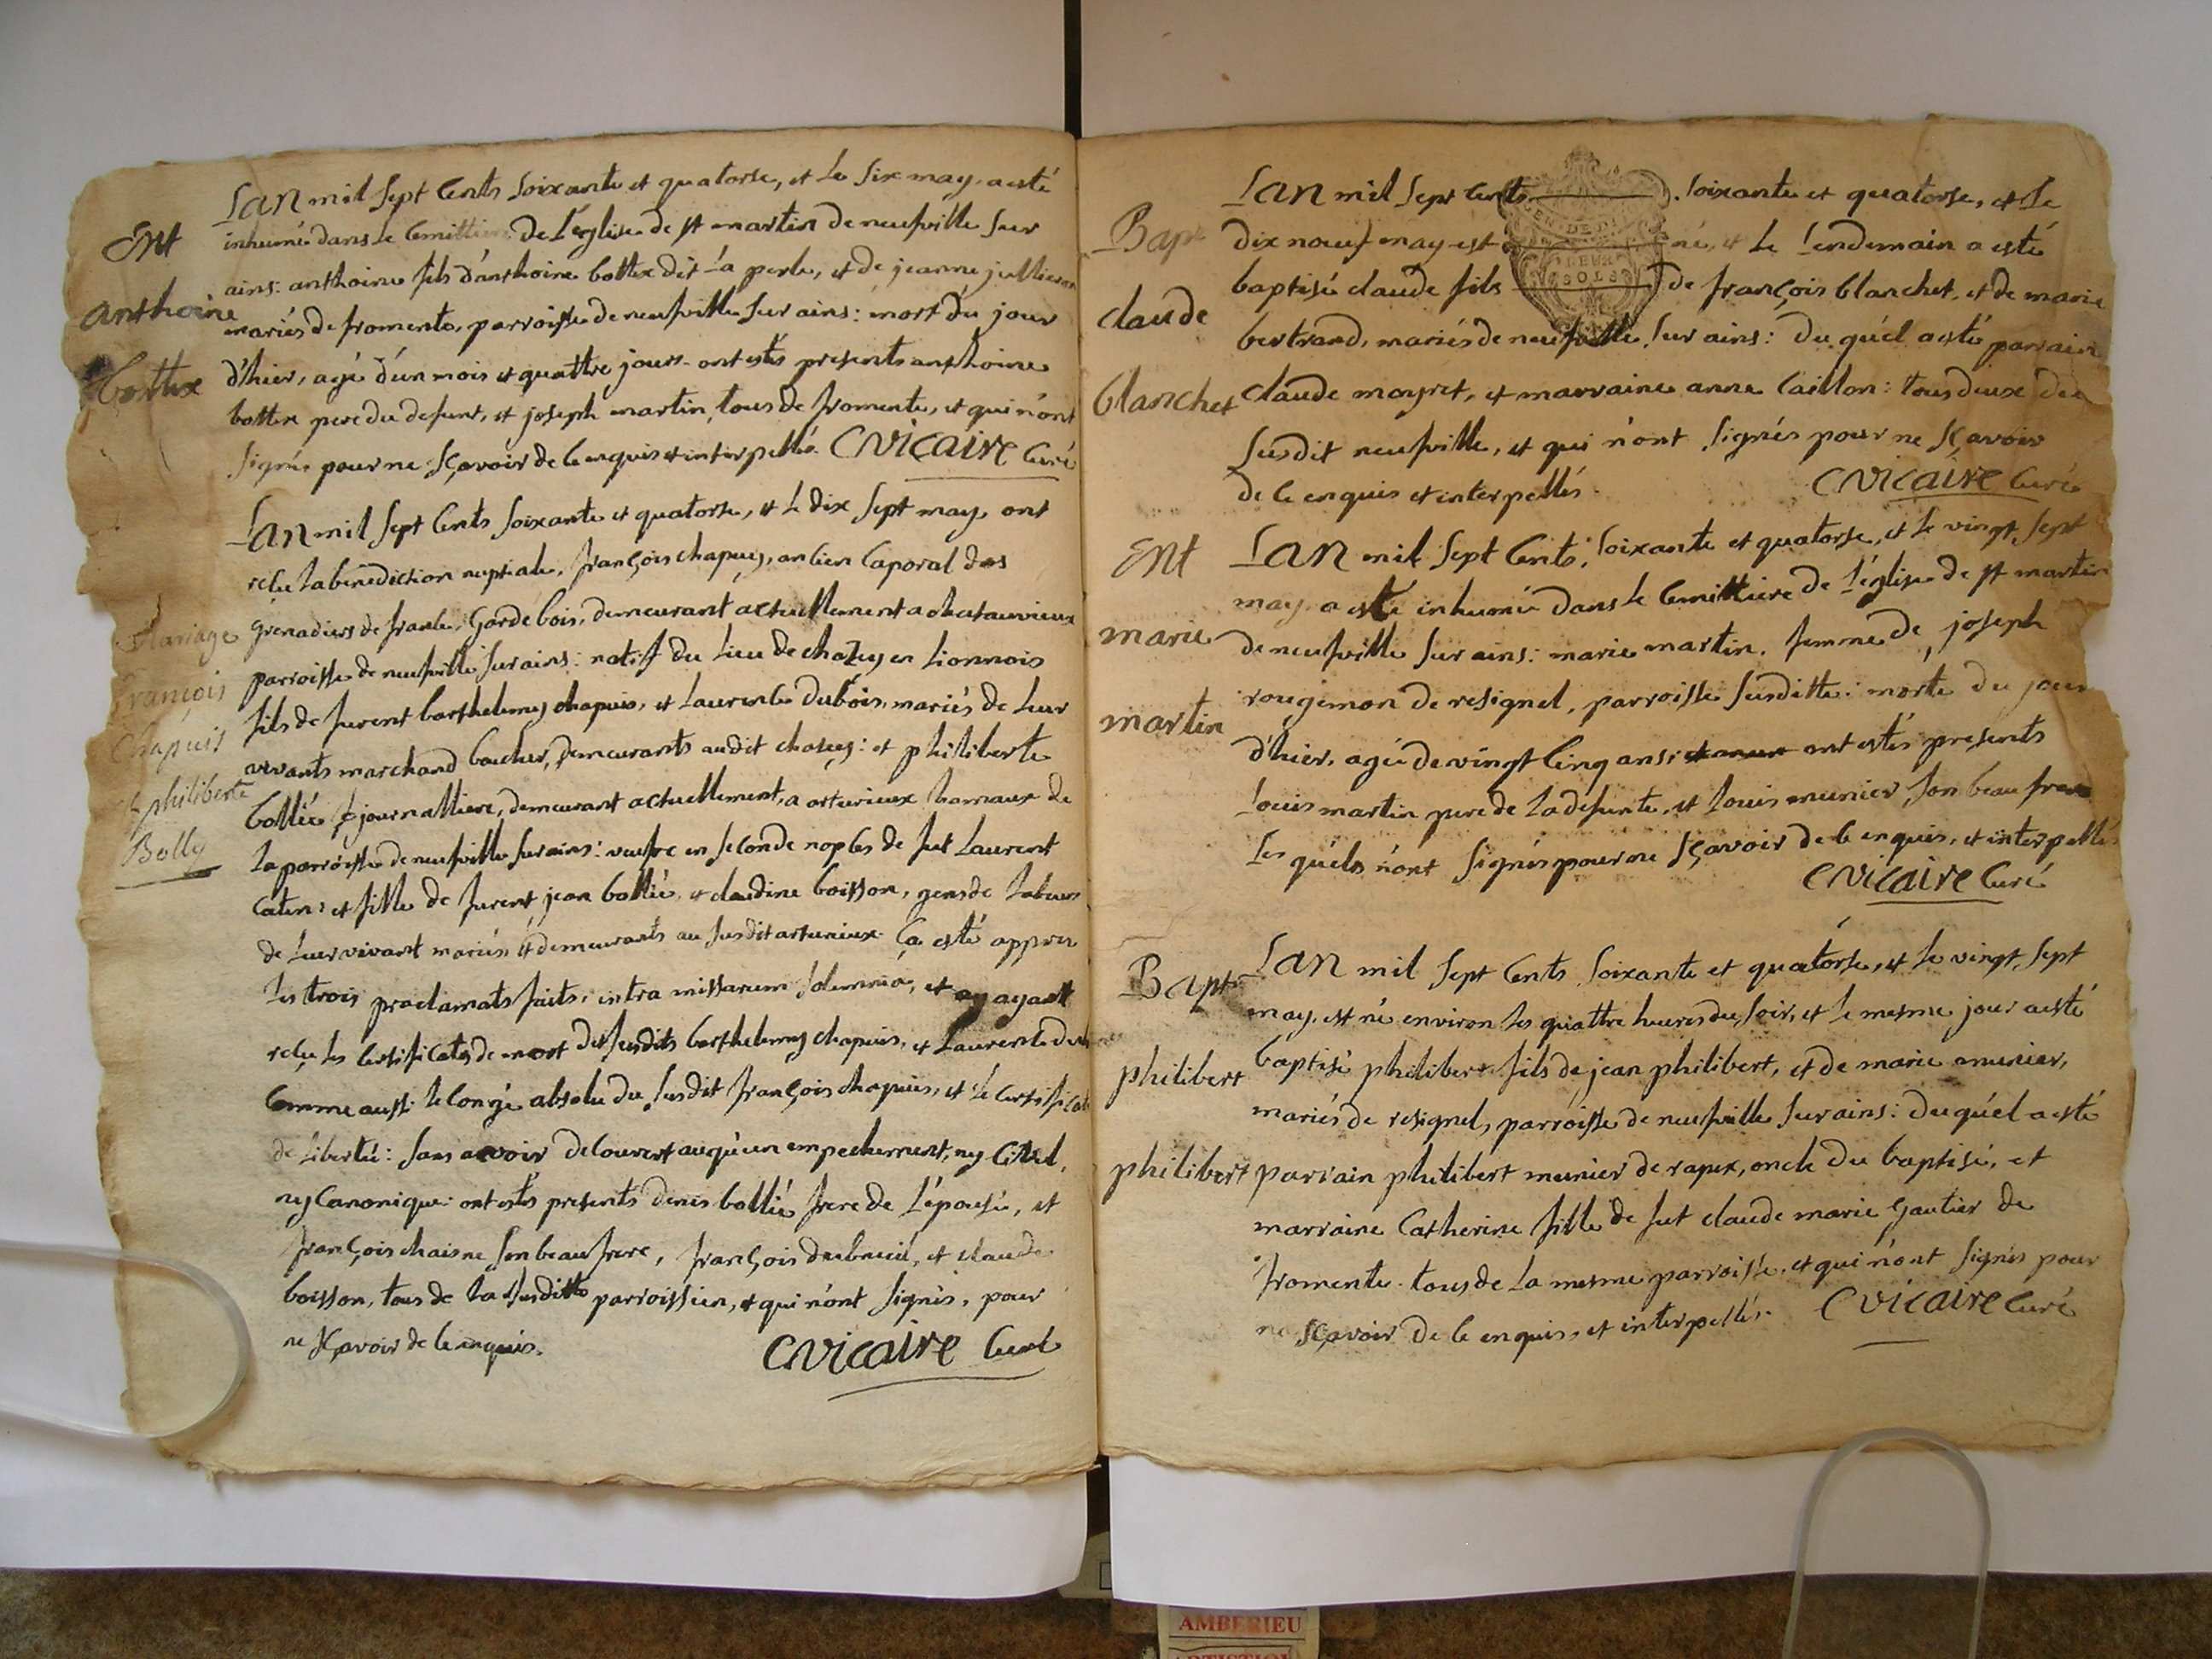 Ent
anthoine
bottex
Lan mil sept cents soixante et quatorse, et le six may, a esté
inhumé dans le cemittiere de l'église de st martin de neufville sur
ains: anthoine fils d'anthoine bottex dit la perle, et de jeanne jullieron
mariés de fromente, parroisse de neufville sur ains: mort du jour
d'hier, agé d'un mois et quattre jours. ont estés presents anthoine
bottex pere du defunt, et joseph martin, tous de fromente, et qui n'ont
signés pour ne sçavoir de ce enquis et interpellés. CVicaire Curé
Mariage
françois
Chapuis
& philiberte
Bolly
Lan mil sept cents soixante et quatorse, et le dix sept may, ont
reçu la bénédiction nuptiale, françois chapuis, ancien caporal des
grenadiers de france, garde bois, demeurant actuellement a chatauvieux
parroisse de neufville sur ains: natif du lieu de chazey en Lionnois
fils de furent barthelemy chapuis, et Laurence dubois, mariés de leur
vivants marchand boucher, demeurants audit chasey: et philiberte
bollié journalliere, demeurant actuellement, a arturieux hamaux de
la parroisse de neufville sur ains: veufve en seconde nopces de fut Laurent
Catin: et fille de furent jean bollié, et claudine boisson, gens de labeur
de leur vivant mariés et demeurants au susdit arturieux. Ça esté appres
les trois proclamats faits, intra missarum solemnia, et ayant
reçu les certificats de mort des susdits barthelemy chapuis, et Laurence dub
comme aussi le congé absolu du susdit françois chapuis, et le certificat
de liberté: sans avoir decouvert auqu'un empechement, ny civil,
ny canonique: ont estés presents denis bollié frere de l'épousée, et
françois chaisne son beau frere, françois dubreuil, et claude
boisson, tous de la susditte parroissien, et qui n'ont signés, pour
ne sçavoir de ce enquis.
CVicaire Curé
Bapt
claude
blanchet
Lan mil sept cents soixante et quatorse, et le
dix neuf may est né, et le lendemain a esté
baptisé claude fils de françois blanchet, et de marie
bertrand, mariés de neufville sur ains: du quél a esté parrain
claude mayret, et marraine anne Caillon: tous deux du
susdit neufville, et qui n'ont signés pour ne sçavoir
de ce enquis et interpellés.
CVicaire Curé
Ent
marie
martin
Lan mil sept cents soixante et quatorse, et le vingt sept
may, a esté inhumée dans le cemittiere de l'église de st martin
de neufville sur ains: marie martin, femme de joseph
rougemon de resignel, parroisse susditte: morte du jour
d'hier, agée de vingt cinq ans; ont estés presents
Louis martin pere de la defunte, et Louis munier, son beau frere
les quéls n'ont signés pour ne sçavoir de ce enquis, et interpellés
CVicaire Curé
Bapt
philibert
philibert
Lan mil sept cents soixante et quatorse, et le vingt sept
may, est né environ les quattre heures du soir, et le mesme jour a esté
baptisé philibert fils de jean philibert, et de marie munier,
mariés de resignel, parroisse de neufville sur ains: du quél a esté
parrain philibert munier de rapex, oncle du baptisé, et
marraine Catherine fille de fut claude marie gautier de
fromente. tous de la mesme parroisse, et qui n'ont signés pour
ne sçavoir de ce enquis, et interpellés.
CVicaire Curé
DEUX
SOLS
AMBERIEU